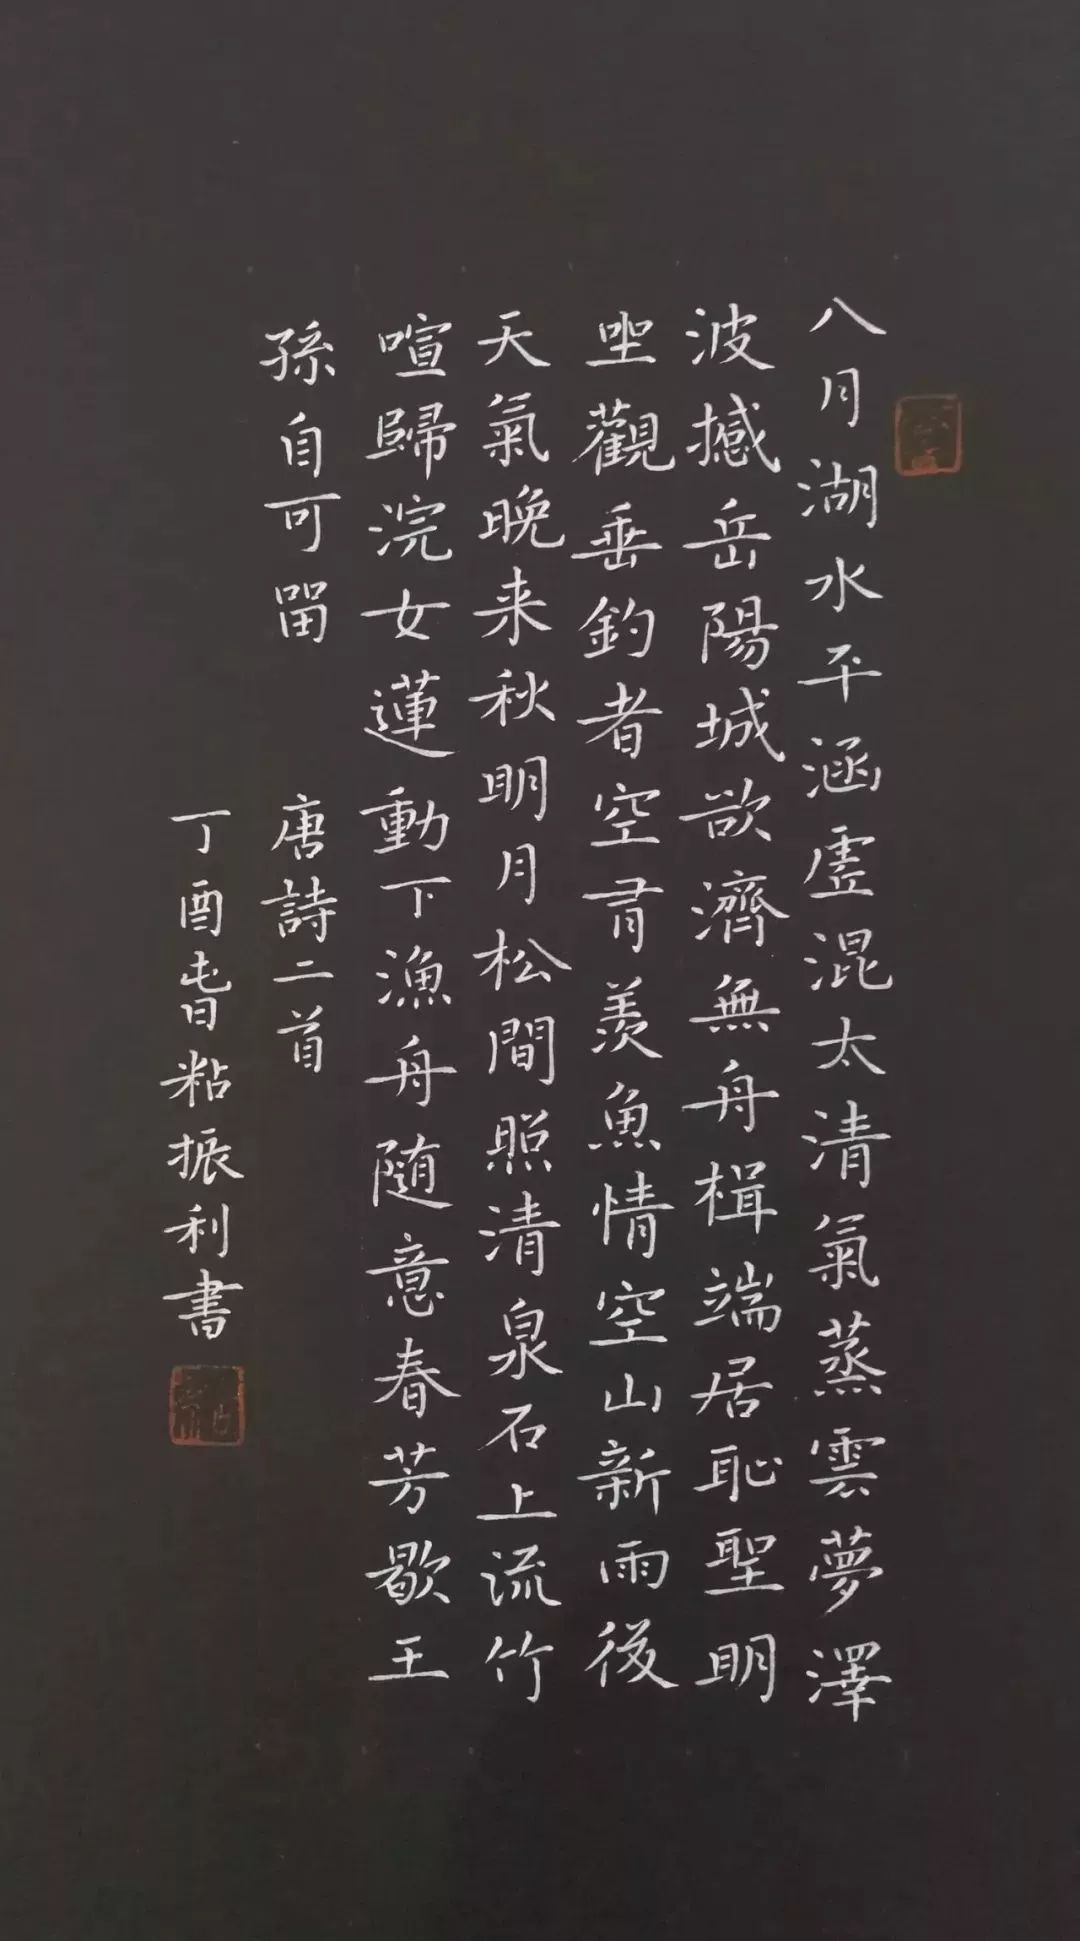 八月湖水平涵虛混太清氣蒸雲夢澤
波撼岳陽城欲濟無舟楫端居恥聖明
坐觀垂釣者空有羨魚情空山新雨後
天氣晚来秋明月松間照清泉石上流竹
喧歸浣女蓮動下漁舟隨意春芳歇王
孫自可留
唐詩二首
丁酉旾粘振利書